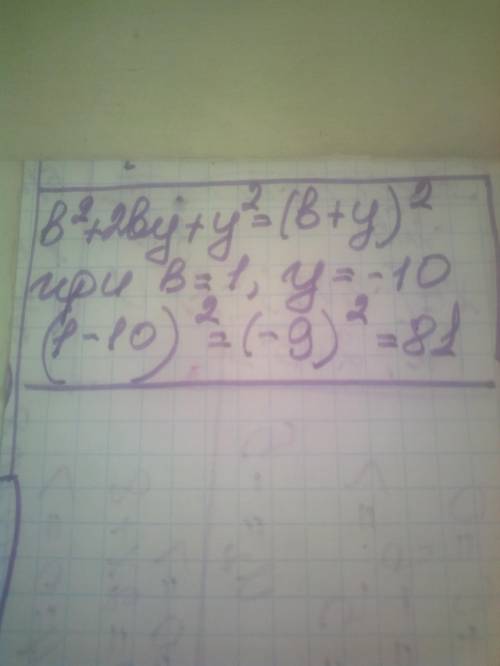 b²+2by+y²=(b+y)²
при b=1, y=-10
(1-10)²=(-9)²=81